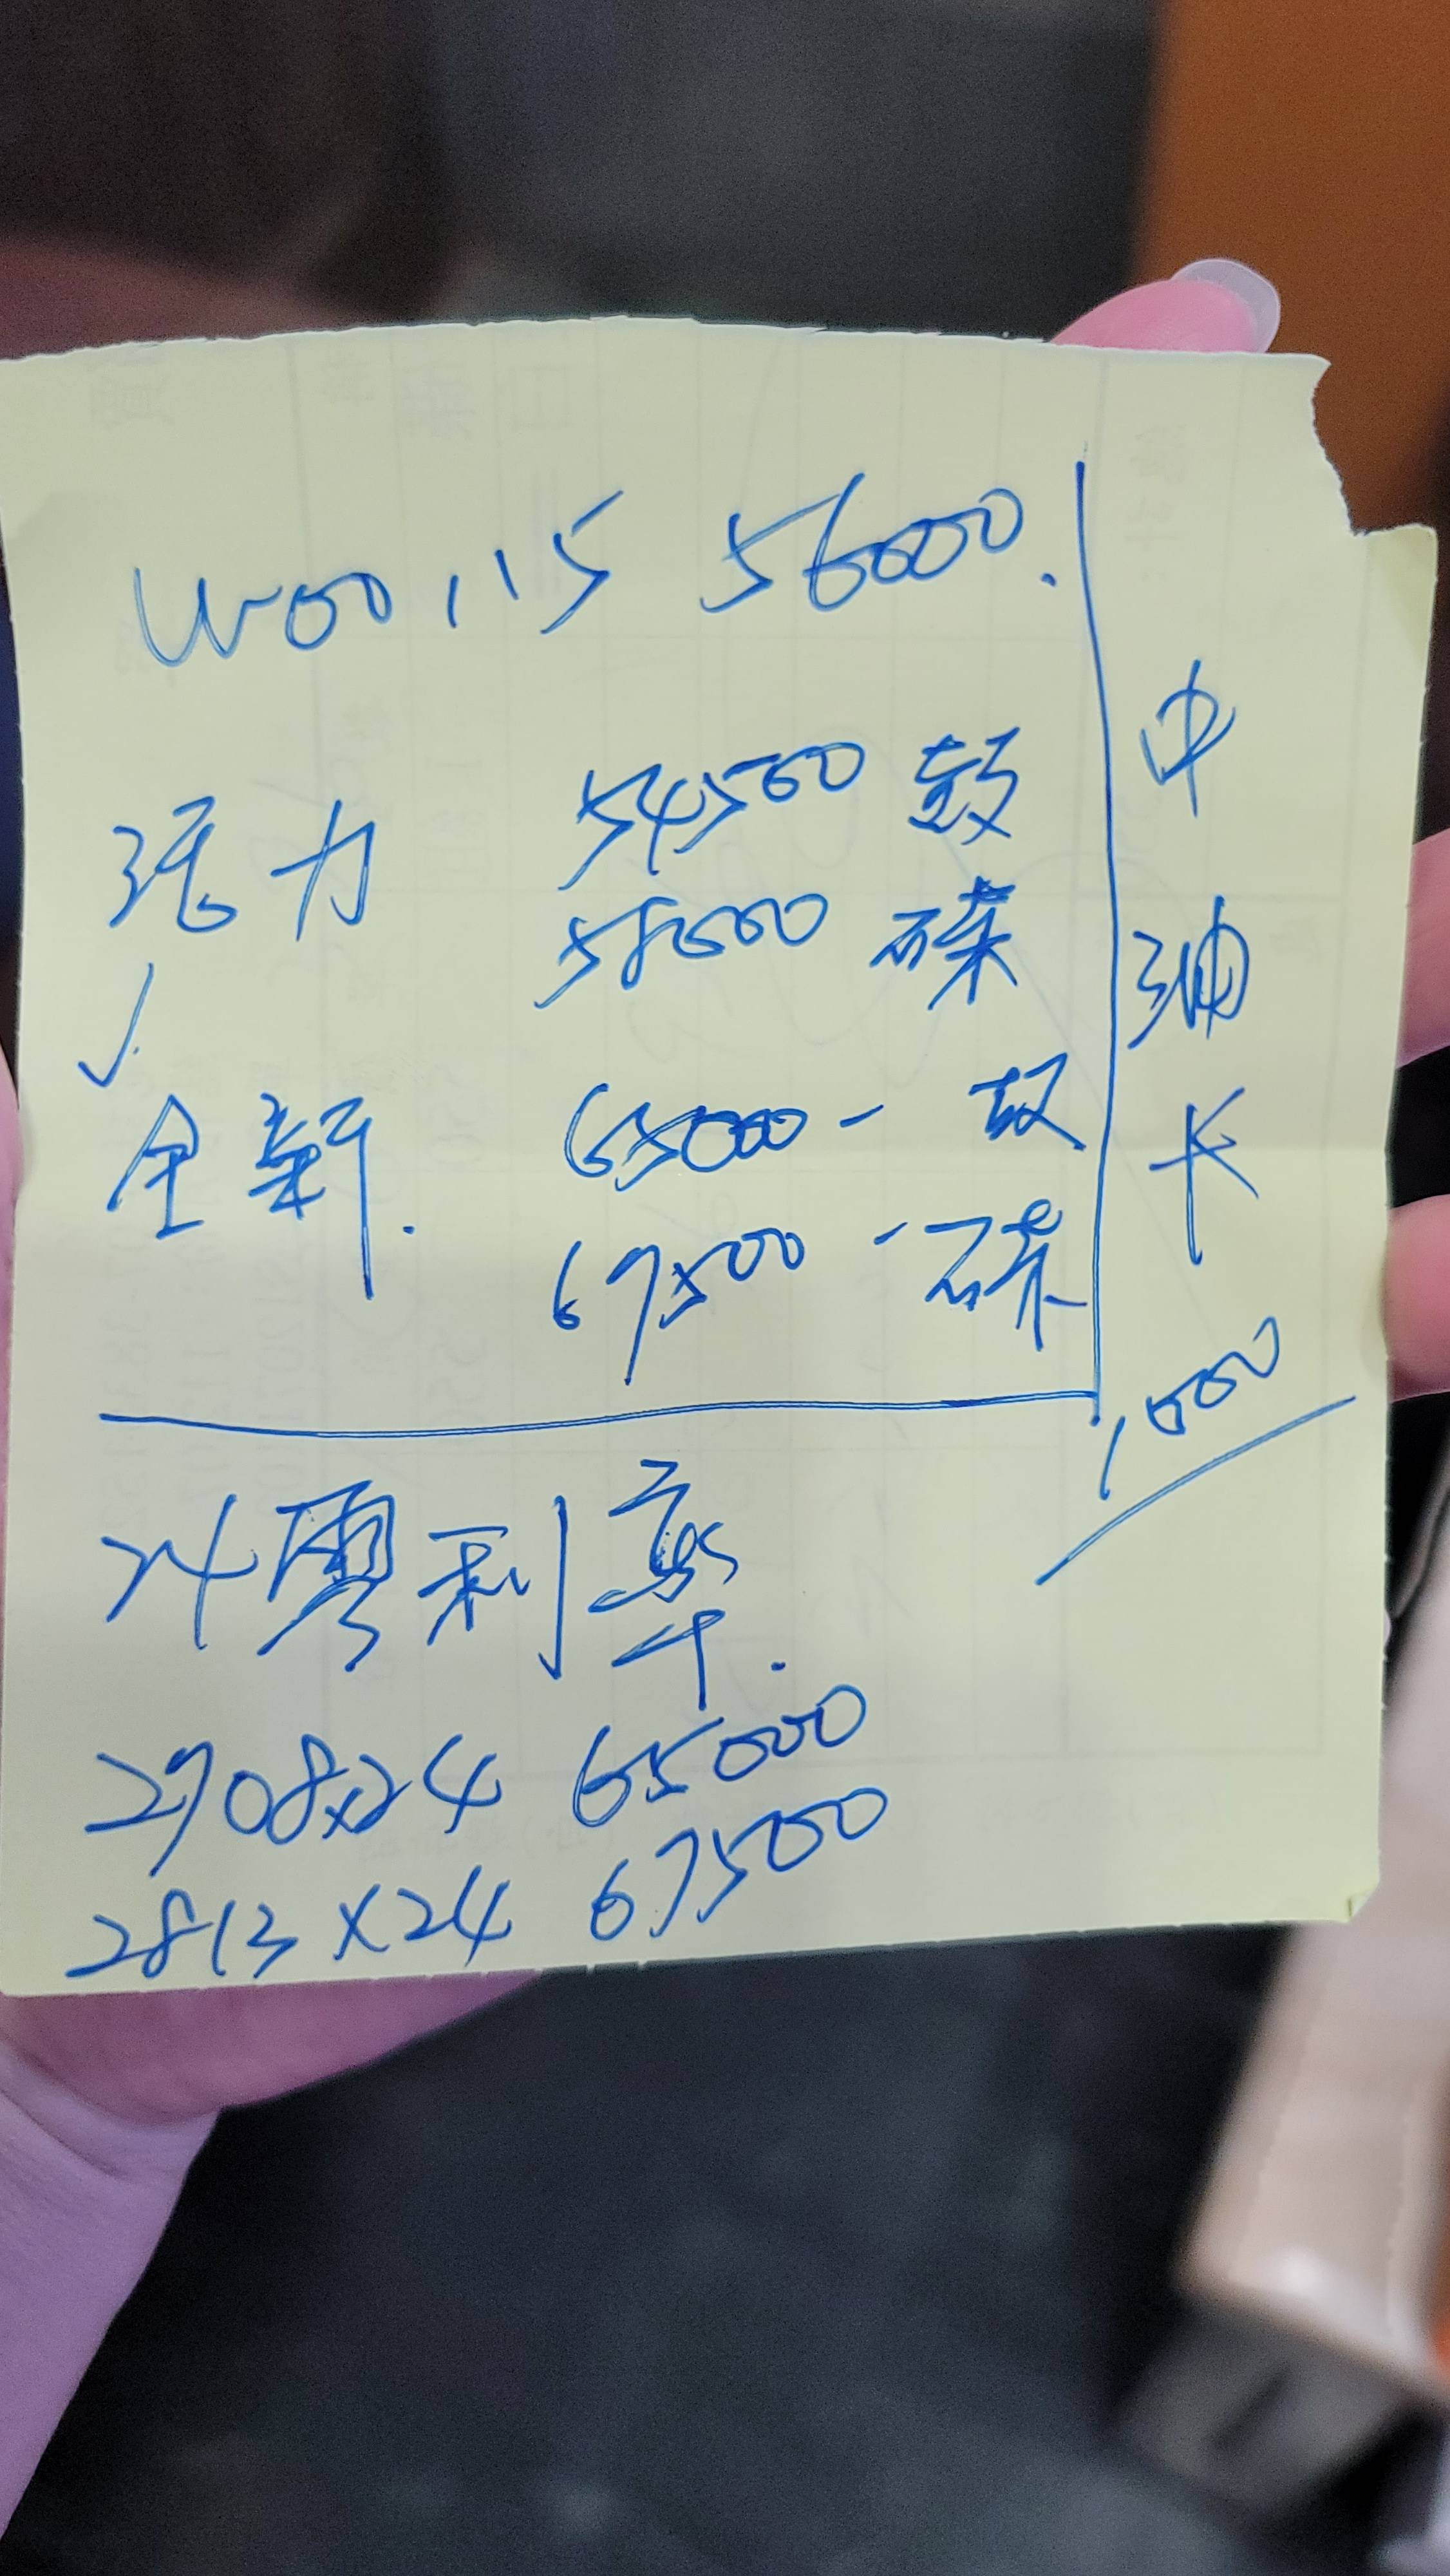 woo 115 56000.
活力 54500 鼓
58000 碟
全新. 65000- 鼓
67500-碟
中油卡
1000
24零利率.
2708x24 65000
2813x24 67500